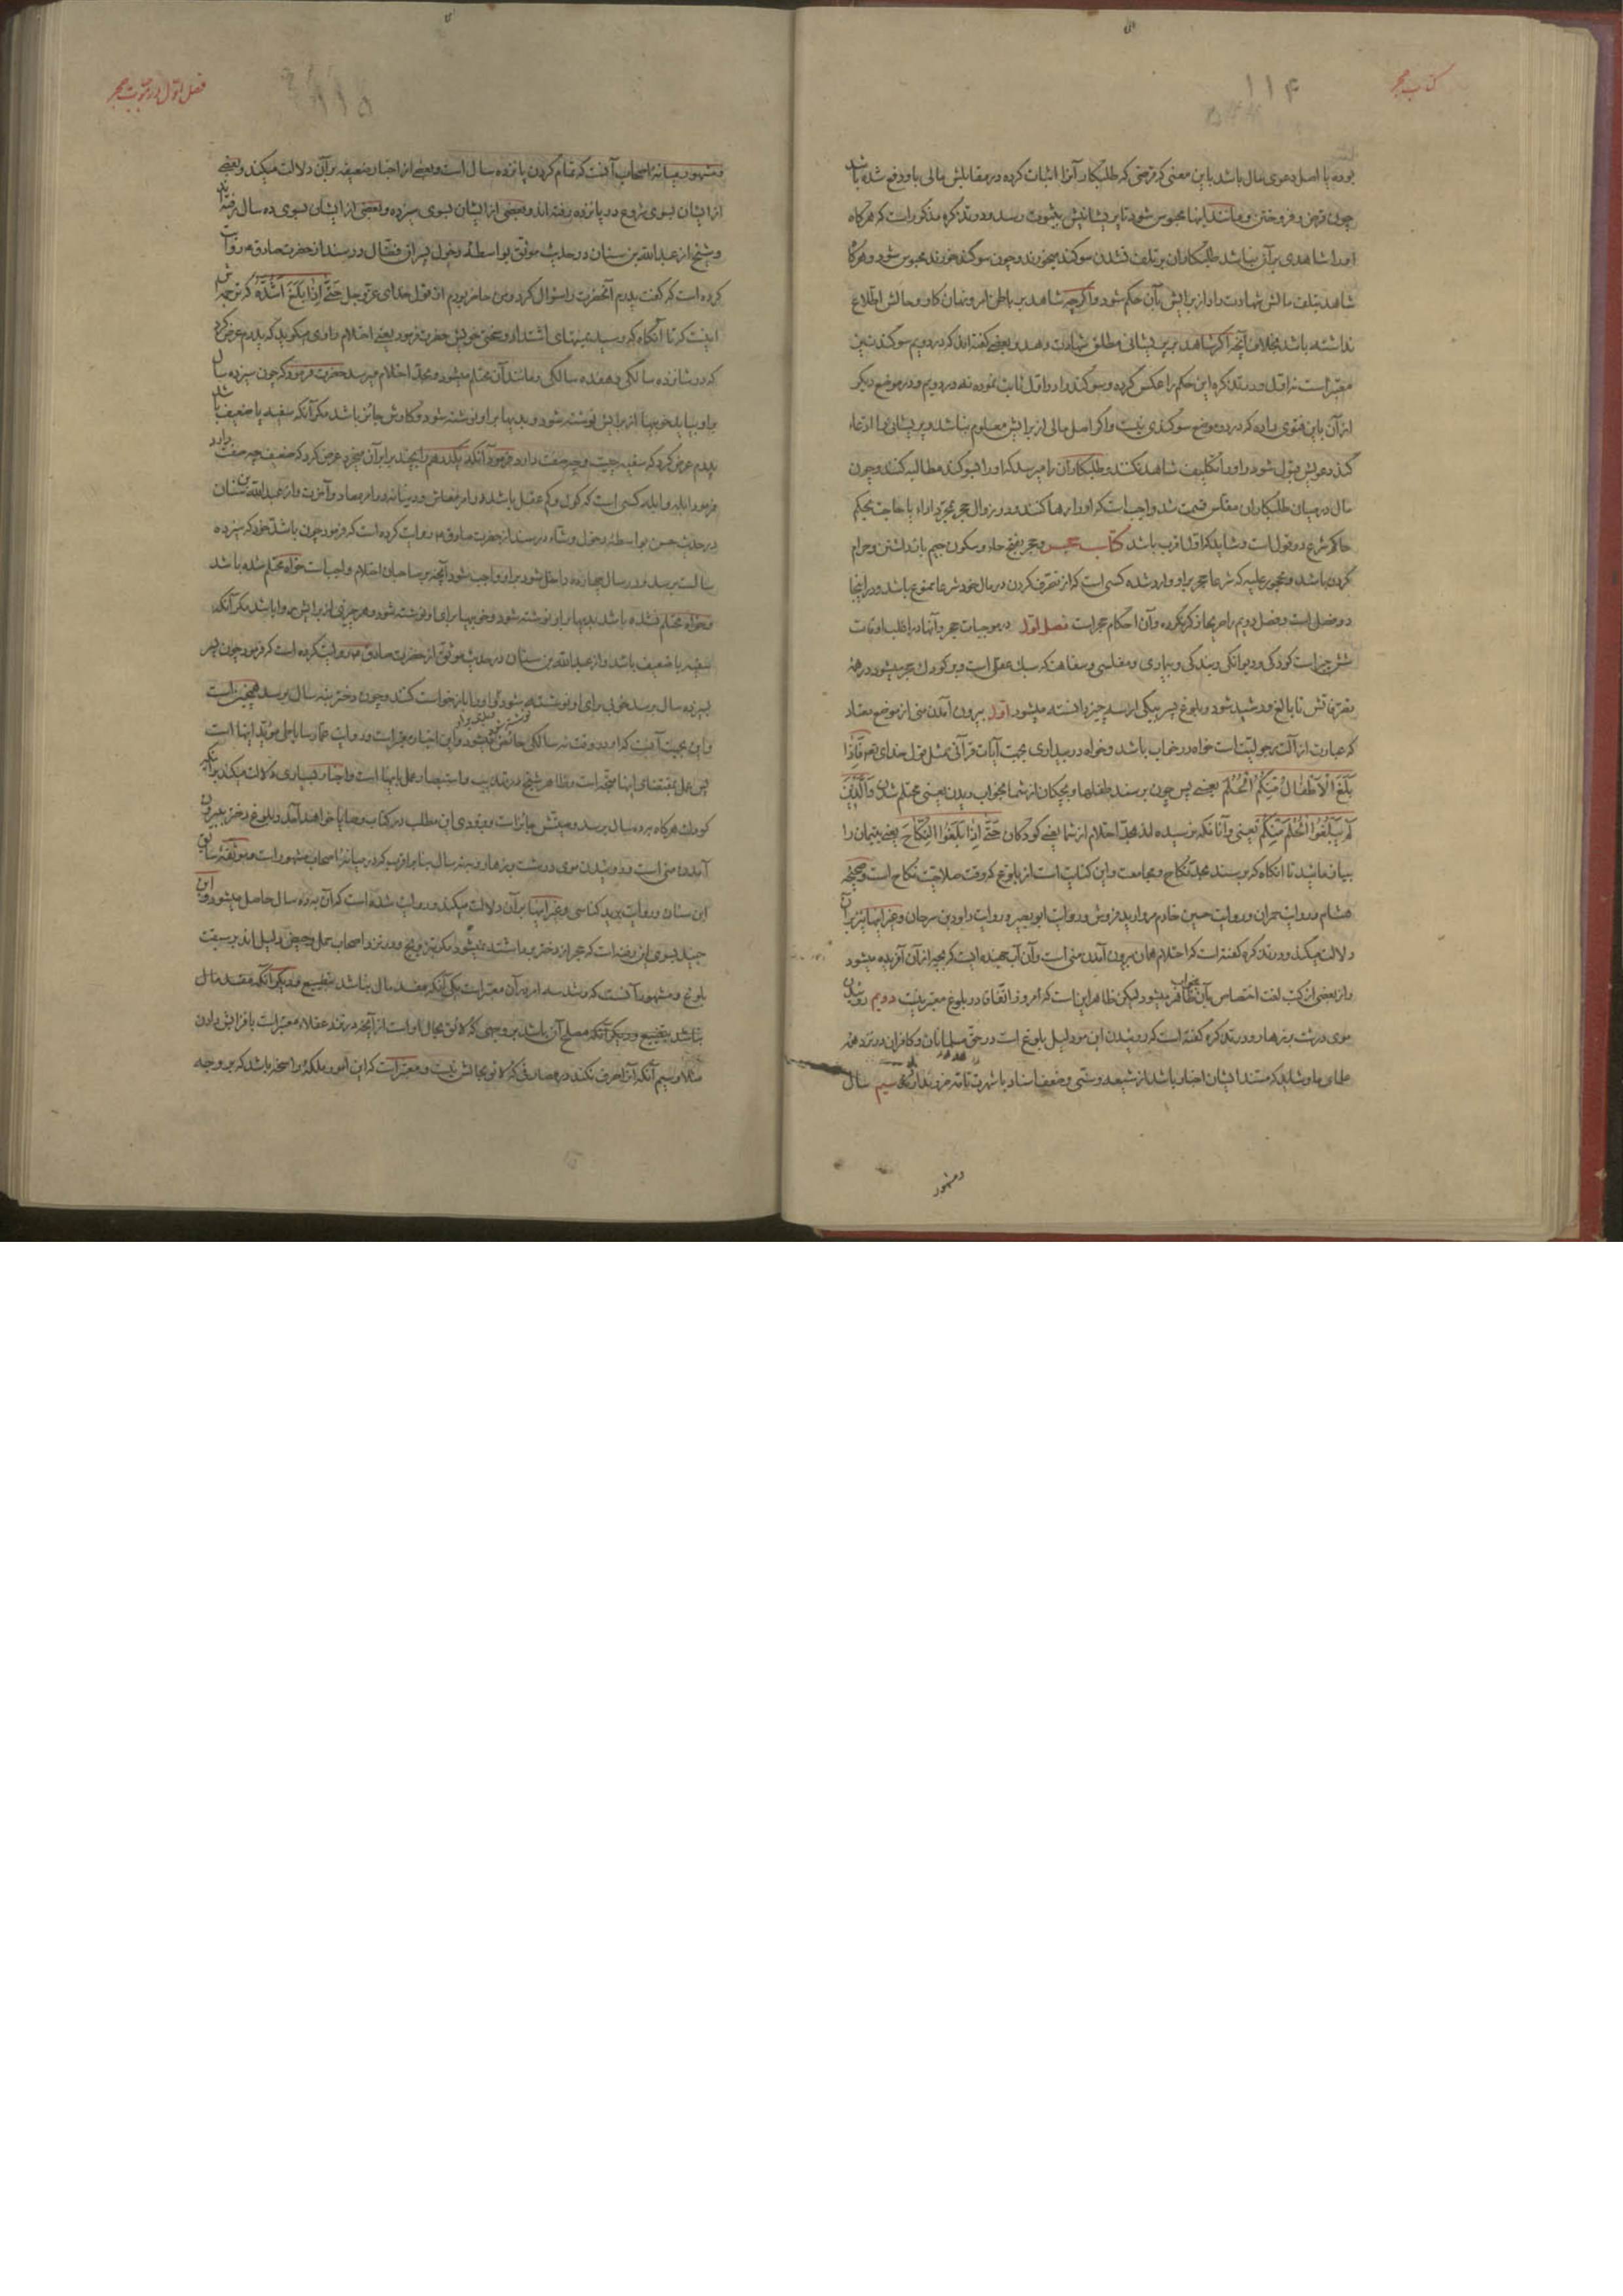 کتاب حجر
۱۱۴
بوده یا اصل دعوی مال باشد باین معنی که قرضی که طلبکار آنرا اثبات کرده در مقابلش مالی باو دفع شده باشد
چون قرض و فروختن و مانند اینها محبوس شود تا پریشانیش بثبوت رسد و در تذکره مذکور است که هرگاه
او را شاهدی بر آن نباشد طلبکاران بر تلف نشدن سوگند میخورند و چون سوگند خورند محبوس شود و هرگاه
شاهد بتلف مالش شهادت داد از برایش بآن حکم شود و اگرچه شاهد بر باطن امر و نهان کار و حالش اطلاع
نداشته باشد بخلاف آنچه اگر شاهد بر پریشانی مطلق شهادت دهد و بعضی گفته‌اند که در دویم سوگند نیز
معتبر است نه اول و در تذکره این حکم را عکس کرده و سوگند را در اول ثابت نموده نه در دویم و در موضع دیگر
از آن باین فتوی داده که در دو موضع سوگندی نیست و اگر اصل مالی از برایش معلوم نباشد و پریشانی را ادعاء
کند دعویش قبول شود و او را تکلیف شاهد نکنند و طلبکاران را میرسد که او را سوگند مطالبه کنند و چون
مال در میان طلبکاران مفلس قسمت شد واجب است که او را رها کنند و در زوال حجر بمجرد اداء یا حاجت بحکم
حاکم شرع دو قول است و شاید که اول اقرب باشد کتاب حجر و حجر بفتح حاء و سکون جیم باز داشتن و حرام
کردن باشد و محجور علیه که شرعا حجر بر او وارد شده کسی است که از تصرف کردن در مال خود شرعا ممنوع باشد و در اینجا
دو فصل است و فصل دویم را مر بجا ذکر نکرده و آن احکام حجر است فصل اول در موجبات حجر و آنها در اغلب اوقات
شش چیز است کودکی و دیوانگی و بندگی و بیماری و مفلسی و سفاهت که سبک عقلی است و بر کودک حجر میشود در همهٔ
تصرفاتش تا بالغ و رشید شود و بلوغ پسر بیکی از سه چیز دانسته میشود اول بیرون آمدن منی از موضع معتاد
که عبارت از آلت رجولیت است خواه در خواب باشد و خواه در بیداری بجهت آیات قرآنی مثل قول خدای تعم فَاِذَا
بَلَغَ الْاَطْفَالُ مِنْکُمُ الْحُلُمَ یعنی پس چون برسند طفلها و بچگان از شما بخواب دیدن یعنی محتلم شدن وَالَّذِینَ
لَمْ یَبْلُغُوا الْحُلُمَ مِنْکُمْ یعنی و آنانکه نرسیده‌اند بحد احتلام از شما یعنی کودکان حَتّٰی اِذَا بَلَغُوا النِّکَاحَ یعنی یتیمان را
بیازمائید تا آنگاه که برسند بحد نکاح و مجامعت و این کنایت است از بلوغ که وقت صلاحیت نکاح است و صحیحهٔ
هشام و روایت حمران و روایت حسین خادم مروارید فروش و روایت ابو بصیر و روایت داود بن سرحان و غیر اینها نیز بر آن
دلالت میکند و در تذکره گفته است که احتلام همان بیرون آمدن منی است و آن آب جهنده ایست که بچه از آن آفریده میشود
و از بعضی از کتب لغت اختصاص بآن بخواب ظاهر میشود لیکن ظاهر این است که امروز اتفاقا در بلوغ معتبر نیست دویم روئیدن
موی درشت بر زهار و در تذکره گفته است که روئیدن این مو دلیل بلوغ است در حق مسلمانان و کافران در نزد همهٔ
علمای ما و شاید که مستند ایشان اخبار باشد از شیعه و سنی و ضعف اسناد با شهرت تامه ضرر ندارد سیم سال
و مشهور
فصل اول در موجبات حجر
۱۱۵
و مشهور میانهٔ اصحاب آنست که تمام کردن پانزده سال است و بعضی از اخبار ضعیفه بر آن دلالت میکند و بعضی
از ایشان بسوی شروع در پانزده رفته‌اند و بعضی از ایشان بسوی سیزده و بعضی از ایشان بسوی ده سال رفته‌اند
و شیخ از عبد الله بن سنان در حدیث موثق بواسطهٔ دخول پسران فضال در سند از حضرت صادق م روایت
کرده است که گفت پدرم آنحضرت را سؤال کرد و من حاضر بودم از قول خدای عز و جل حَتّٰی اِذَا بَلَغَ اَشُدَّهُ که ترجمه‌اش
اینست که تا آنگاه که رسید بنهایت‌های اشتداد و سختی خویش حضرت فرمود یعنی احتلام راوی میگوید که پدرم عرض کرد
که در شانزده سالگی و هفده سالگی و مانند آن محتلم میشود و بحد احتلام میرسد حضرت فرمود که چون سیزده سال
بر او بیاید خوبیها از برایش نوشته شود و بدیها بر او نوشته شود و کارش جائز باشد مگر آنکه سفیه یا ضعیف باشد
پدرم عرض کرد که سفیه چیست و چه صفت دارد فرمود آنکه یکدرهم را بچند برابر آن میخرد عرض کرد که ضعیف چه صفت دارد
فرمود ابله و ابله کسی است که کول و کم عقل باشد در امر معاش و دنیا نه در امر معاد و آخرت و از عبد الله بن سنان
در حدیث حسن بواسطهٔ دخول وشاء در سند از حضرت صادق م روایت کرده است که فرمود چون باشد خود که سیزده
سالست برسد و در سال چهارده داخل شود بر او واجب شود آنچه بر صاحبان احتلام واجب است خواه محتلم شده باشد
و خواه محتلم نشده باشد بدیها بر او نوشته شود و خوبیها برای او نوشته شود و هر چیزی از برایش روا باشد مگر آنکه
سفیه یا ضعیف باشد و از عبد الله بن سنان در حدیث موثق از حضرت صادق م روایت کرده است که فرمود چون پسر
بسیزده سال برسد خوبی برای او نوشته شود و او را بازخواست کنند و چون دختر بنه سال برسد همچنین است
و این بجهت آنست که او در وقت نه سالگی حائض میشود و این اخبار معتبر است و روایت عمار ساباطی مؤید اینها است
پس عمل بمقتضای اینها متجه است و ظاهر شیخ در تهذیب و استبصار عمل باینها است و اخبار بسیاری دلالت میکند بر آنکه
کودک هرگاه بده سال برسد وصیتش جائز است و بزودی این مطلب در کتاب وصایا خواهد آمد و بلوغ دختر به بیرون
آمدن منی است و روئیدن موی درشت بر زهار و بنه سال بنا بر اقرب که در میانهٔ اصحاب مشهور است و موثقهٔ سابق
ابن سنان و روایت یزید کناسی و غیر اینها بر آن دلالت میکند و روایت شده است که آن به ده سال حاصل میشود و ابن
جنید بسوی این رفته است که حجر از دختر برداشته نمیشود مگر بتزویج و در نزد اصحاب حمل و حیض دلیل‌اند بر سبقت
بلوغ و مشهور آنست که در رشد سه امر در آن معتبر است یکی آنکه مفسد مال نباشد بتضییع و دیگر آنکه مفسد مال
نباشد بتضییع و دیگر آنکه مصلح آن باشد بر وجهی که لائق بحال او است از آنچه در نزد عقلاء معتبر است با افزایش دادن
مثلا و سیم آنکه آنرا صرف نکند در مصارفی که لائق بحالش نیست و معتبر است که این امور ملکهٔ راسخه باشد که بر وجه